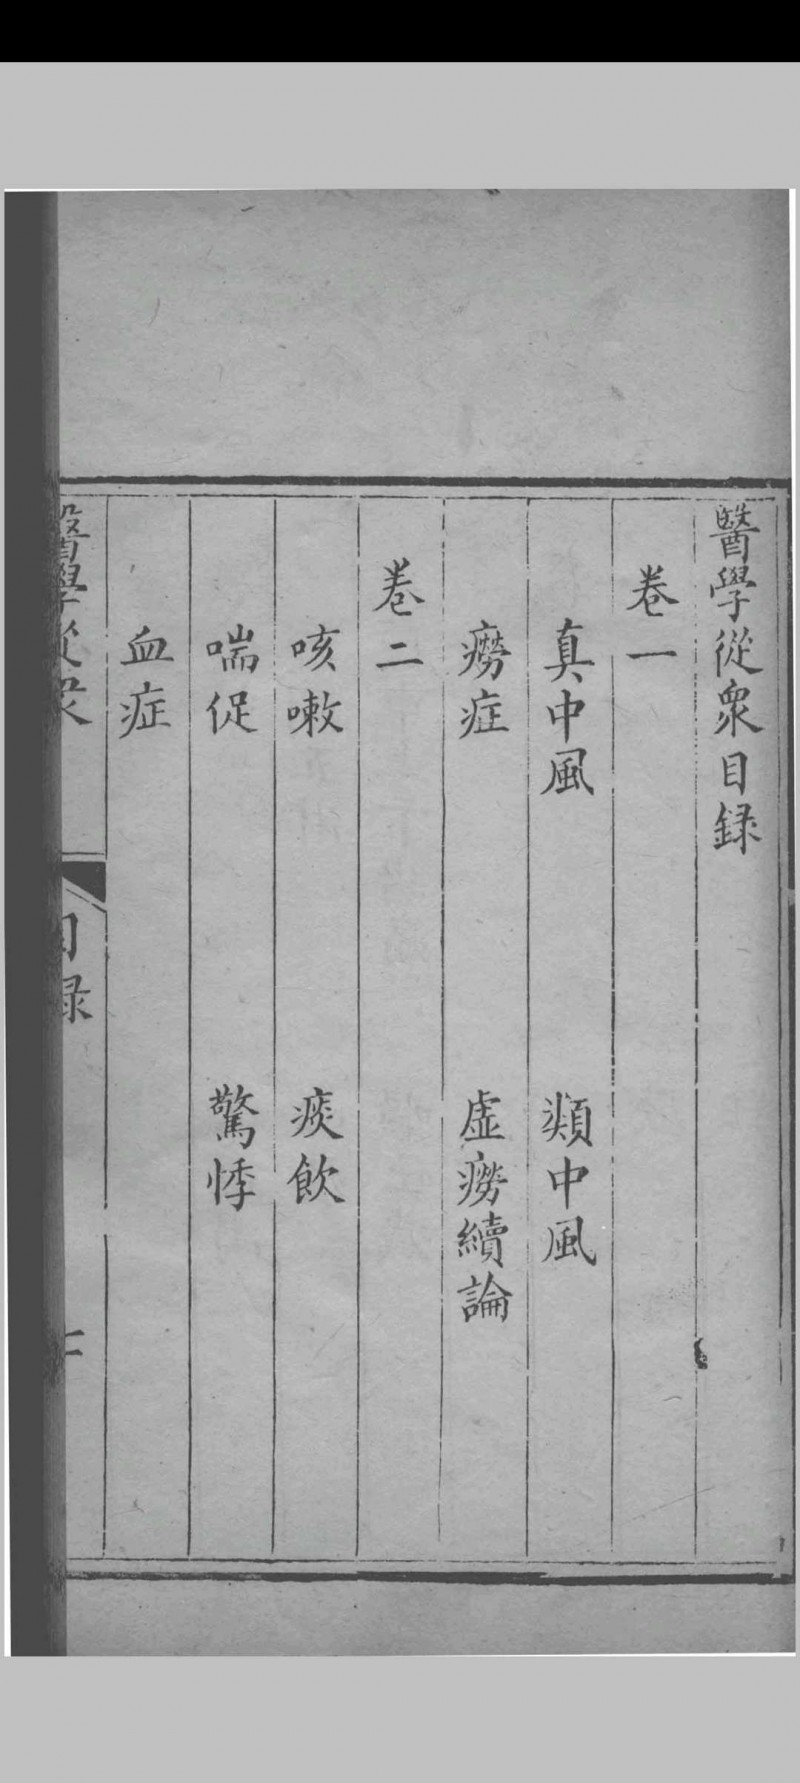 醫學從衆目録
卷一
真中風 類中風
癆症 虛癆續論
卷二
咳嗽 痰飲
喘促 驚悸
血症
醫學從衆 目録 一